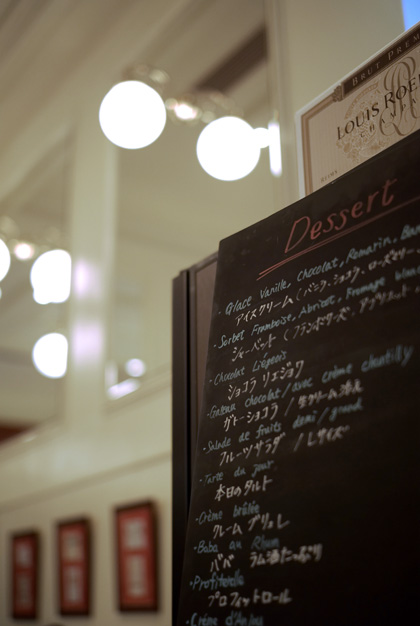 BRUT PREM
LOUIS ROE
Dessert
・Glace Vanille, Chocolat, Romarin, Ban
アイスクリーム (バニラ・ショコラ・ローズマリー
・Sorbet Framboise, Abricot, Fromage blanc
シャーベット (フランボワーズ、アブリコット、
・Chocolat Liégeois
ショコラ リエジョワ
・Gateau chocolat / avec crème chantilly
ガトーショコラ / 生クリーム添え
・Salade de fruits demi / grand
フルーツサラダ / Lサイズ
・Tarte du jour
本日のタルト
・Crème brûlée
クレーム ブリュレ
・Baba au Rhum
ババ ラム酒たっぷり
・Profiterolle
プロフィットロール
・Crème d'An